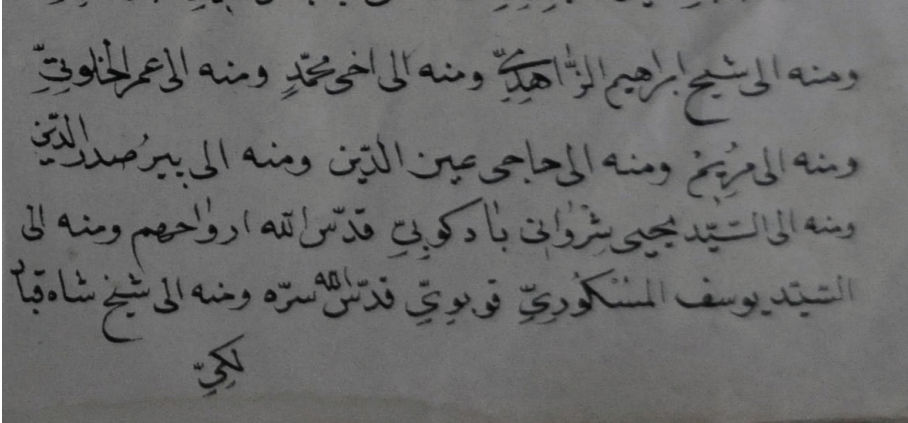 ومنه الى شيخ ابراهيم الزّاهدىّ ومنه الى اخى محمّدٍ ومنه الى عمر الخلوتىِّ
ومنه الى مرُيمْ ومنه الى حاجى عين الدّين ومنه الى بيرُ صدر الدّين
ومنه الى السّيّد يحيى شِرْوانى بادكوبىِّ قدّس الله ارواحهم ومنه الى
السّيّد يوسف المسْكُورِىِّ قوبوىِّ قدّس الله سرّه ومنه الى شيخ شاه قباد
لَكِىِّ